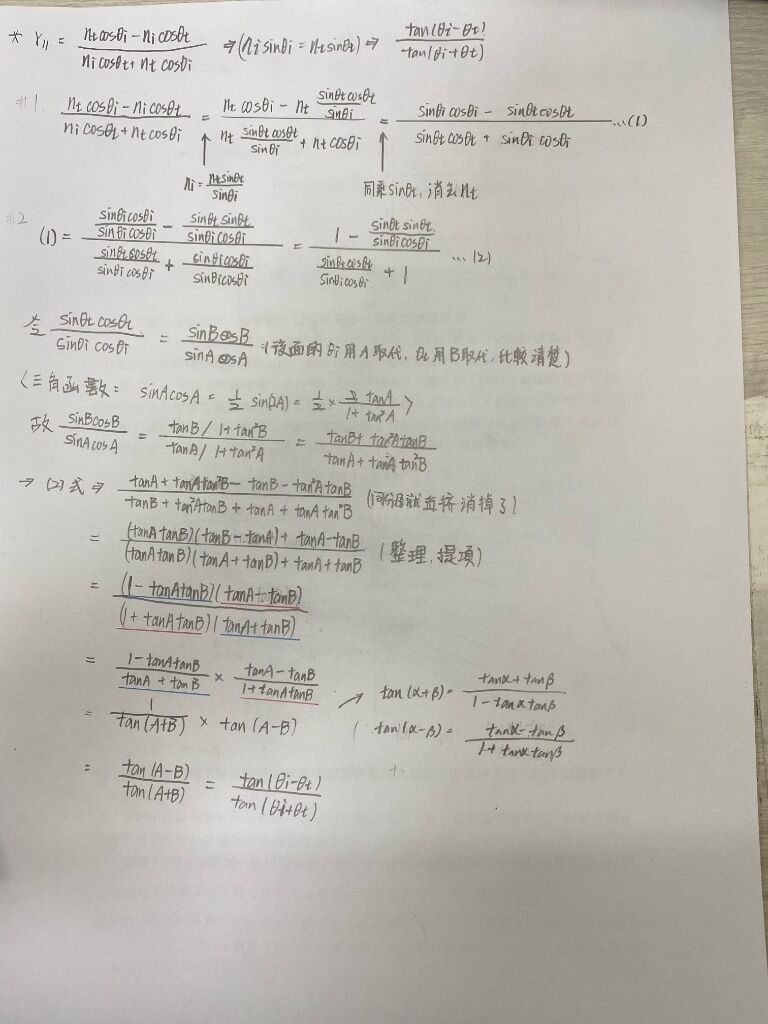 * r∥ = (nt cosθi − ni cosθt)/(ni cosθt + nt cosθi) ⇒ (ni sinθi = nt sinθt) ⇒ tan(θi−θt)/tan(θi+θt)
#1. (nt cosθi − ni cosθt)/(ni cosθt + nt cosθi) = (nt cosθi − nt (sinθt cosθt/sinθi))/(nt (sinθt cosθt/sinθi) + nt cosθi) = (sinθi cosθi − sinθt cosθt)/(sinθt cosθt + sinθi cosθi) …(1)
ni = nt sinθt/sinθi
同乘 sinθi, 消去 nt
#2 (1) = ((sinθi cosθi/sinθi cosθi) − (sinθt sinθt/sinθi cosθi))/((sinθt cosθt/sinθi cosθi) + (sinθi cosθi/sinθi cosθi)) = (1 − (sinθt sinθt/sinθi cosθi))/((sinθt cosθt/sinθi cosθi) + 1) …(2)
令 sinθt cosθt/sinθi cosθi = sinB cosB/sinA cosA (後面的 θi 用 A 取代, θt 用 B 取代, 比較清楚)
〈三角函數: sinA cosA = 1/2 sin(2A) = 1/2 × 2 tanA/(1+tan²A)〉
故 sinB cosB/sinA cosA = (tanB/1+tan²B)/(tanA/1+tan²A) = (tanB + tan²A tanB)/(tanA + tanA tan²B)
→ (2)式 ⇒ (tanA + tanA tan²B − tanB − tan²A tanB)/(tanB + tan²A tanB + tanA + tanA tan²B) (同分母就直接消掉了)
= ((tanA tanB)(tanB − tanA) + tanA − tanB)/((tanA tanB)(tanA + tanB) + tanA + tanB) (整理, 提項)
= ((1 − tanA tanB)(tanA − tanB))/((1 + tanA tanB)(tanA + tanB))
= (1 − tanA tanB)/(tanA + tanB) × (tanA − tanB)/(1 + tanA tanB)
tan(α+β) = (tanα + tanβ)/(1 − tanα tanβ)
= 1/tan(A+B) × tan(A−B)
( tan(α−β) = (tanα − tanβ)/(1 + tanα tanβ)
= tan(A−B)/tan(A+B) = tan(θi−θt)/tan(θi+θt)